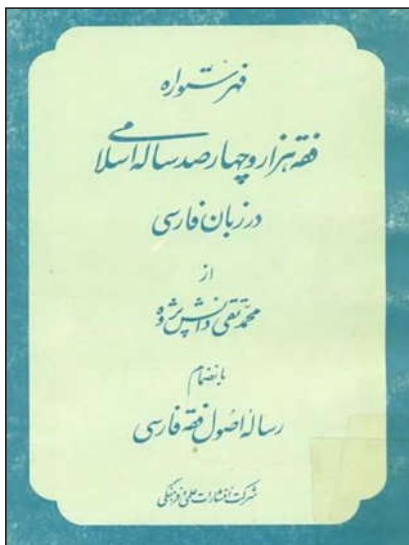 فهرستواره
فقه هزار و چهارصد ساله اسلامی
در زبان فارسی
از
محمد تقی دانش پژوه
بانضمام
رساله اصول فقه فارسی
شرکت انتشارات علمی و فرهنگی